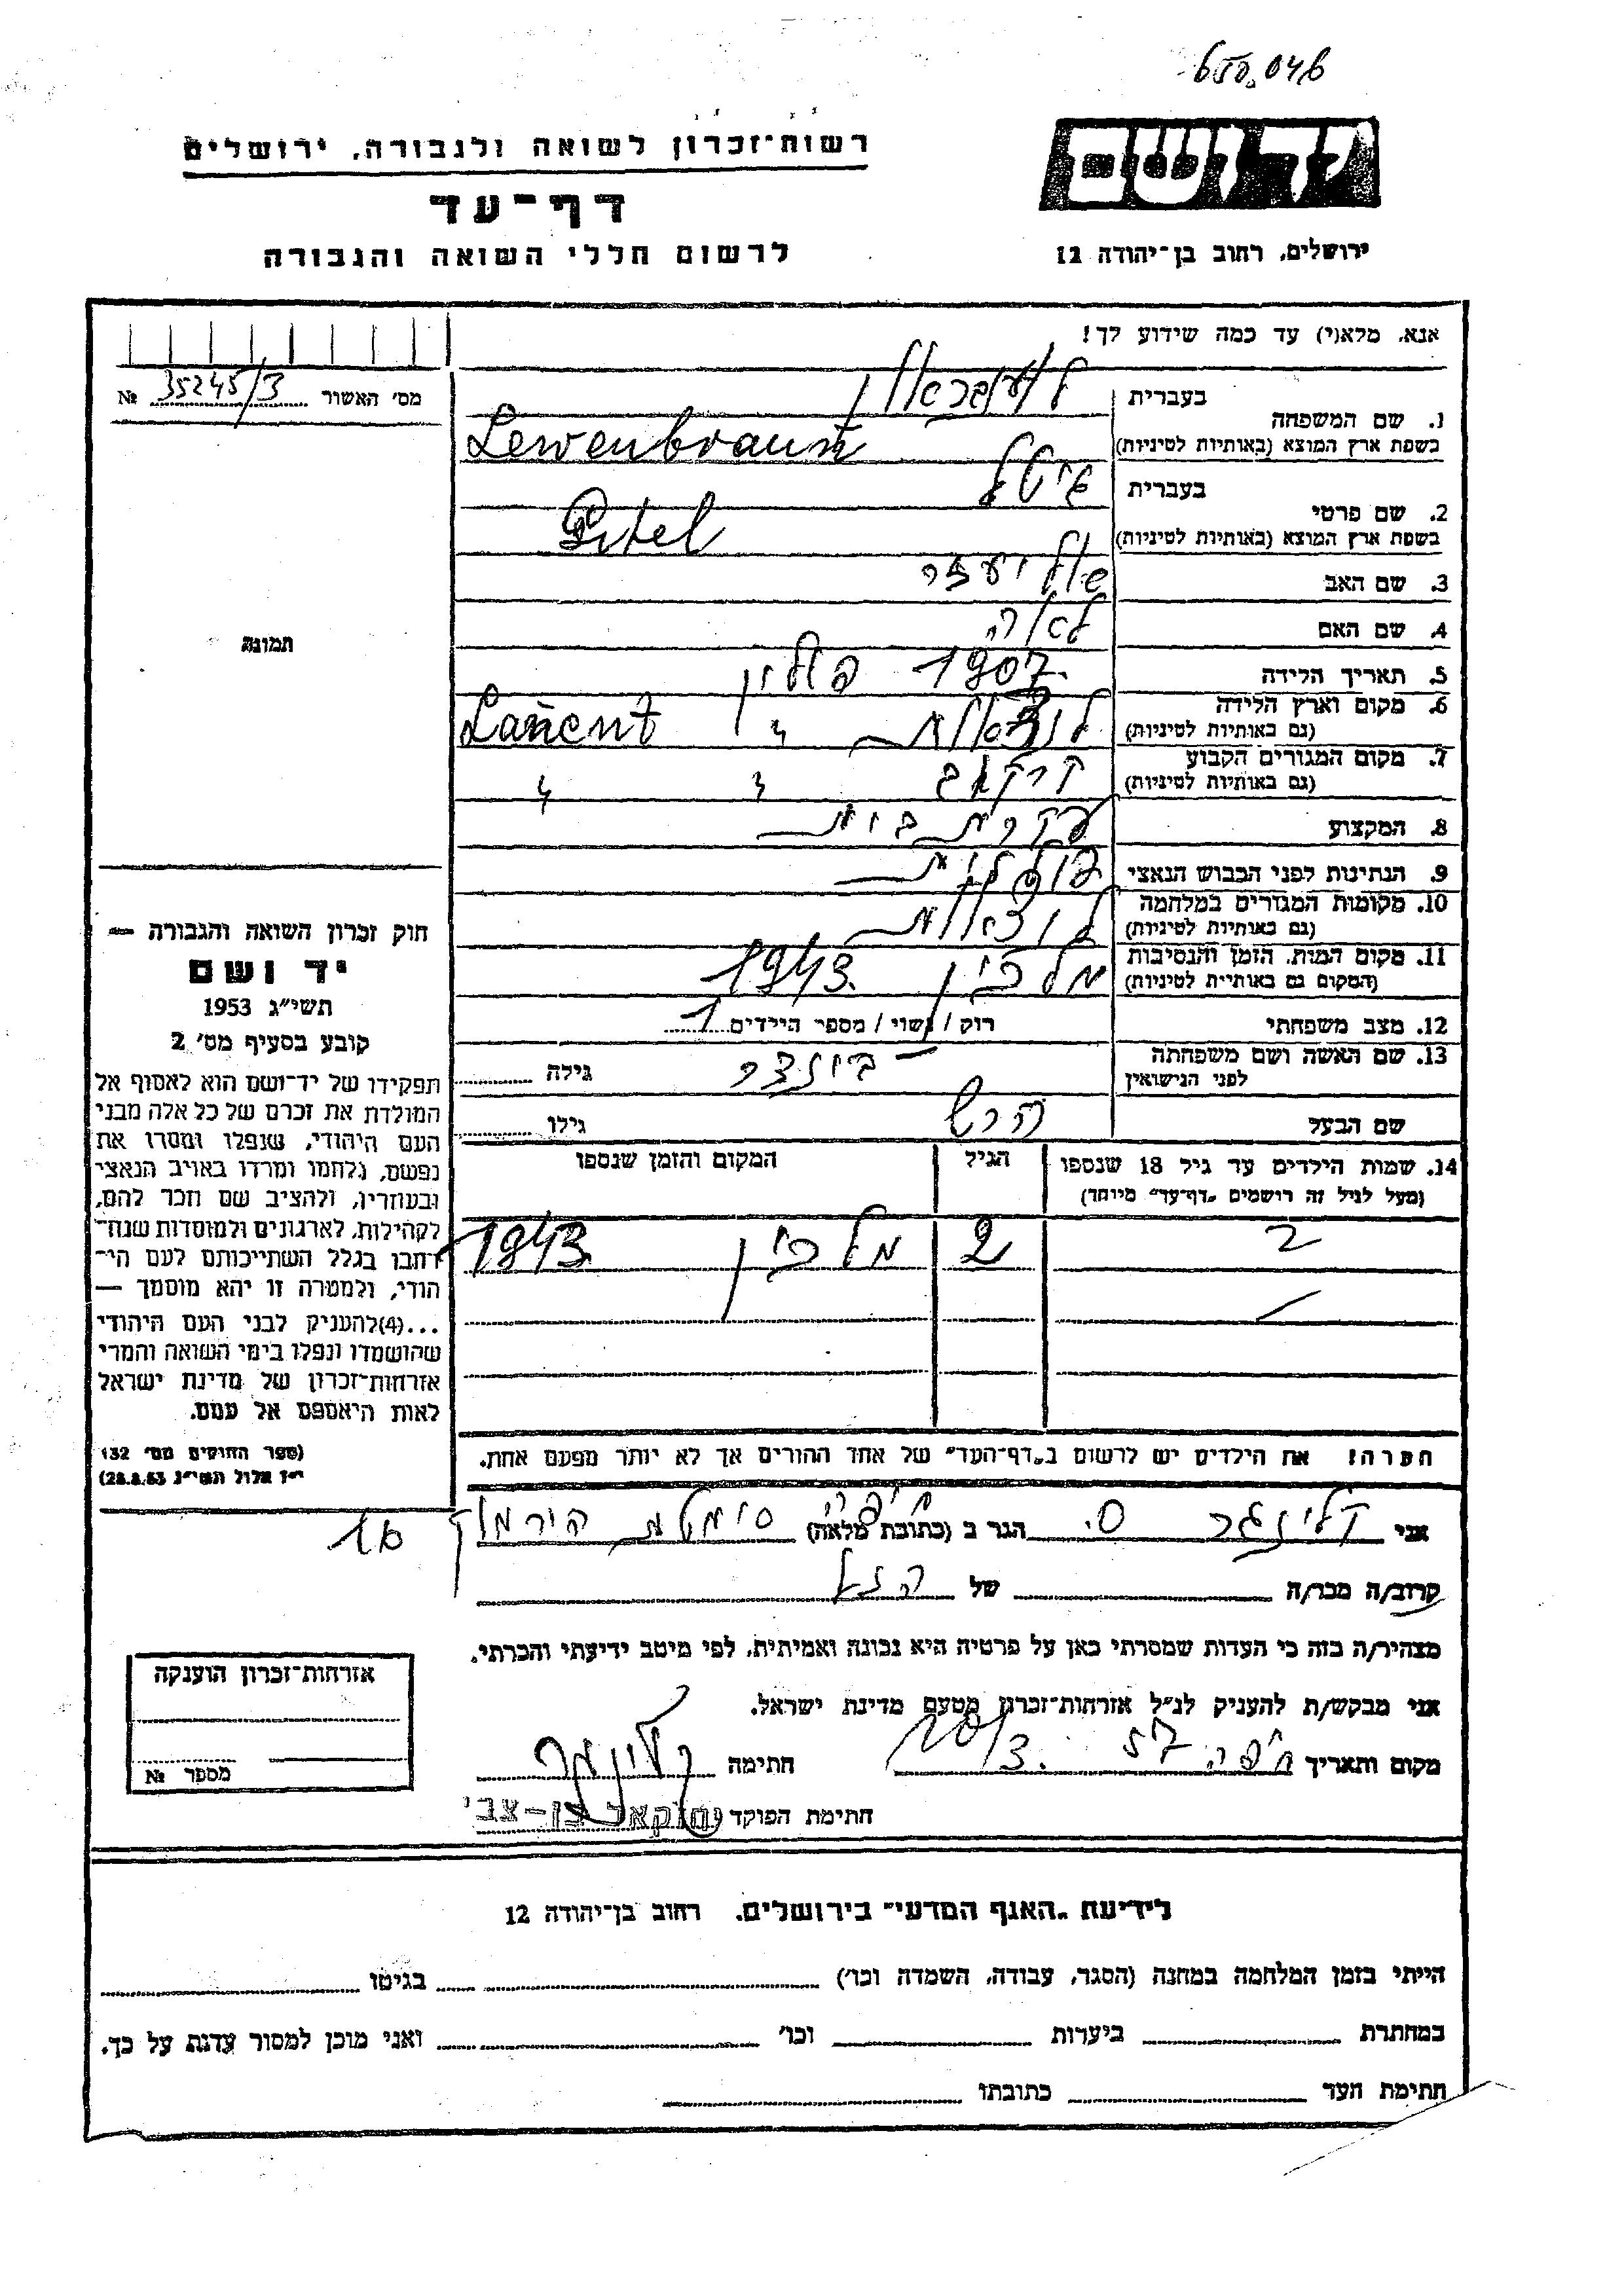 650.046
רשות־זכרון לשואה ולגבורה, ירושלים
יד ושם
דף־עד
לרשום חללי השואה והגבורה
ירושלים, רחוב בן־יהודה 12
אנא, מלא(י) עד כמה שידוע לך!
מס׳ האשור 35245/3 №
1. שם המשפחה
בעברית
בשפת ארץ המוצא (באותיות לטיניות) Lewenbraun
2. שם פרטי
בעברית גיטל
בשפת ארץ המוצא (באותיות לטיניות) Gitel
3. שם האב
4. שם האם לאה
5. תאריך הלידה 1907 פולין
6. מקום וארץ הלידה
(גם באותיות לטיניות) Lańcut "
7. מקום המגורים הקבוע
(גם באותיות לטיניות) " "
8. המקצוע עקרת בית
9. הנתינות לפני הכבוש הנאצי פולנית
10. מקומות המגורים במלחמה
(גם באותיות לטיניות)
11. מקום המות, הזמן והנסיבות
(המקום גם באותיות לטיניות) 1943
12. מצב משפחתי רוק / נשוי / מספר הילדים 1
13. שם האשה ושם משפחתה
לפני הנישואין גילה
שם הבעל הרש גילו
14. שמות הילדים עד גיל 18 שנספו
(מעל לגיל זה רושמים „דף־עד” מיוחד)
הגיל
המקום והזמן שנספו
2 1943
תמונה
חוק זכרון השואה והגבורה —
יד ושם
תשי״ג 1953
קובע בסעיף מס׳ 2
תפקידו של יד־ושם הוא לאסוף אל
המולדת את זכרם של כל אלה מבני
העם היהודי, שנפלו ומסרו את
נפשם, נלחמו ומרדו באויב הנאצי
ובעוזריו, ולהציב שם וזכר להם,
לקהילות, לארגונים ולמוסדות שנח־
רחבו בגלל השתייכותם לעם הי־
הודי, ולמטרה זו יהא מוסמך —
...(4)להעניק לבני העם היהודי
שהושמדו ונפלו בימי השואה והמרי
אזרחות־זכרון של מדינת ישראל
לאות היאספם אל עמם.
(ספר החוקים מס׳ 132
י״ז אלול תשי״ג 28.8.53)
הערה! את הילדים יש לרשום ב„דף־העד” של אחד ההורים אך לא יותר מפעם אחת.
אני קלינגר ס. הגר ב (כתובת מלאה) חיפה סימטת הירמוק 16
קרוב/ה מכר/ה של הנ״ל
מצהיר/ה בזה כי העדות שמסרתי כאן על פרטיה היא נכונה ואמיתית, לפי מיטב ידיעתי והכרתי.
אני מבקש/ת להעניק לנ״ל אזרחות־זכרון מטעם מדינת ישראל.
מקום ותאריך חיפה 57 .10/3 חתימה קלינגר
חתימת הפוקד יחזקאל בן-צבי
אזרחות־זכרון הוענקה
מספר №
לידיעת „האגף המדעי” בירושלים, רחוב בן־יהודה 12
הייתי בזמן המלחמה במחנה (הסגר, עבודה, השמדה וכו׳) בגיטו
במחתרת ביערות וכו׳ ואני מוכן למסור עדות על כך.
חתימת העד כתובתו